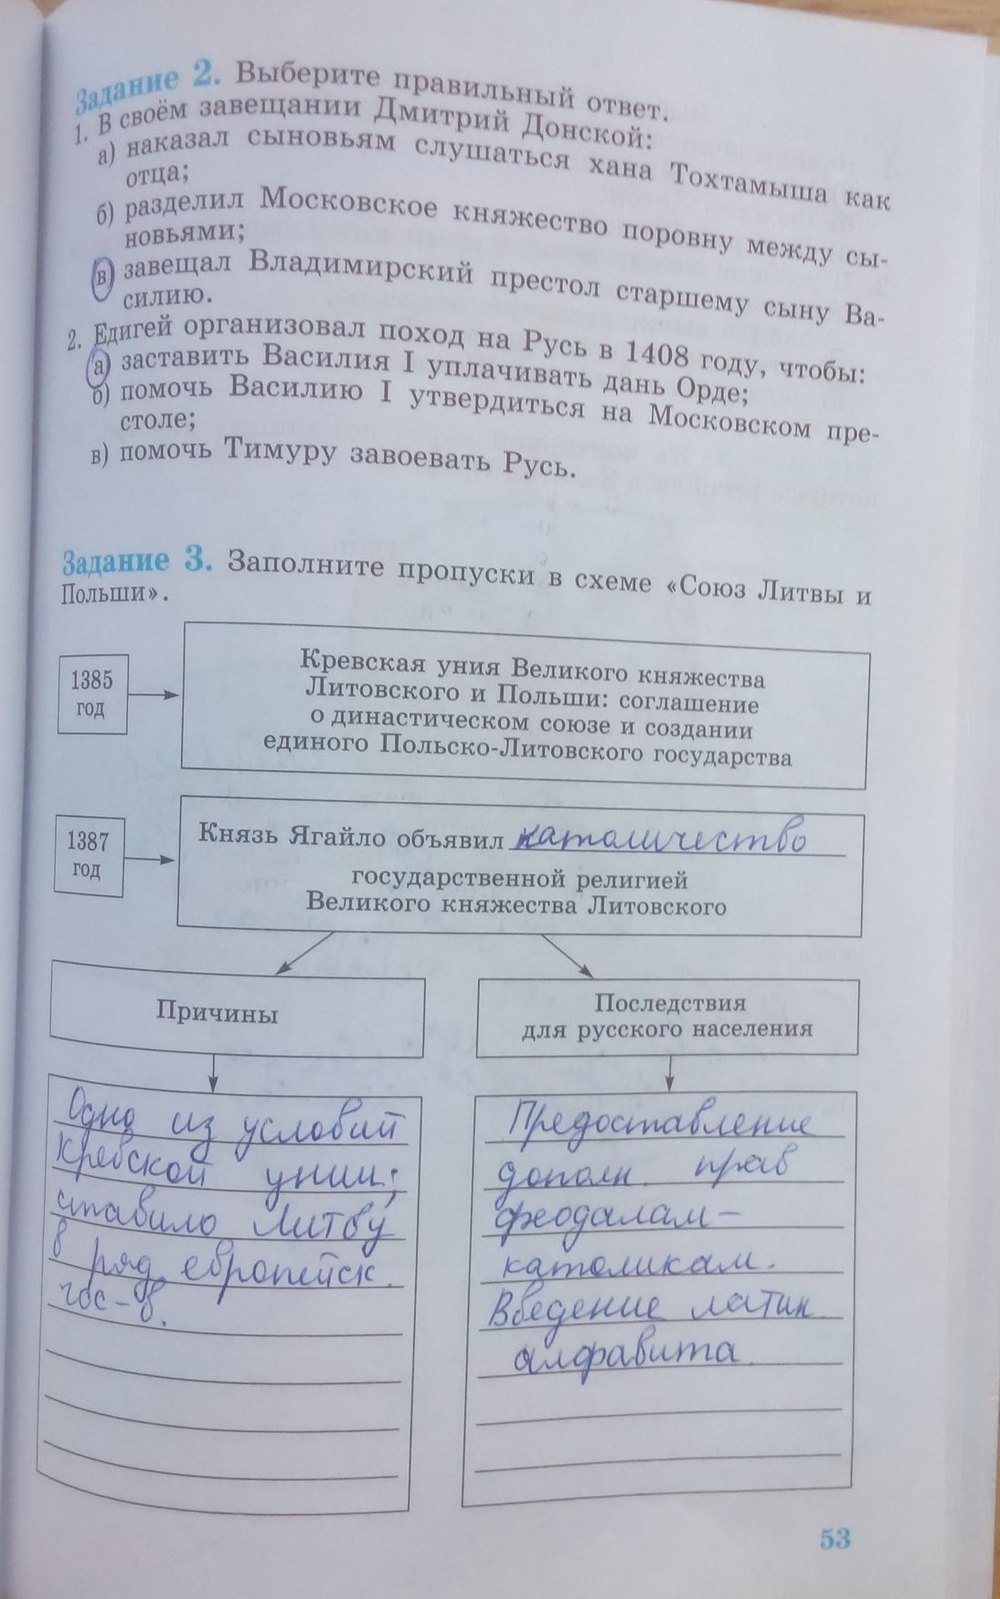 Задание 2. Выберите правильный ответ.
1. В своём завещании Дмитрий Донской:
а) наказал сыновьям слушаться хана Тохтамыша как
отца;
б) разделил Московское княжество поровну между сы-
новьями;
в) завещал Владимирский престол старшему сыну Ва-
силию.
2. Едигей организовал поход на Русь в 1408 году, чтобы:
а) заставить Василия I уплачивать дань Орде;
б) помочь Василию I утвердиться на Московском пре-
столе;
в) помочь Тимуру завоевать Русь.
Задание 3. Заполните пропуски в схеме «Союз Литвы и
Польши».
1385
год
Кревская уния Великого княжества
Литовского и Польши: соглашение
о династическом союзе и создании
единого Польско-Литовского государства
1387
год
Князь Ягайло объявил католичество
государственной религией
Великого княжества Литовского
Причины
Одно из условий
Кревской унии;
ставило Литву
в ряд европейск.
гос-в.
Последствия
для русского населения
Предоставление
дополн. прав
феодалам-
католикам.
Введение латин.
алфавита.
53